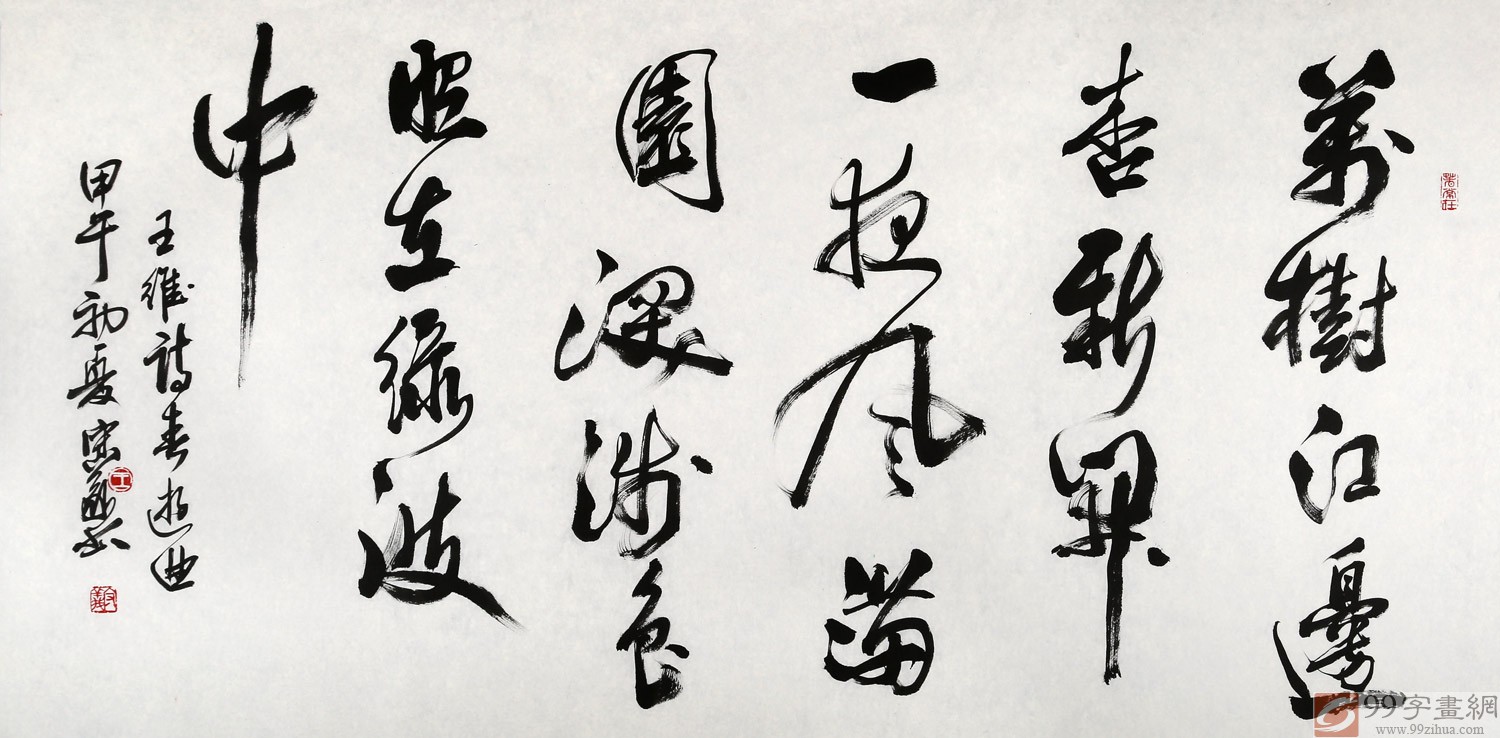 萬樹江邊
杏新開
一夜風滿
園深淺色
照在綠波
中
王維詩春遊曲
甲午初夏宋
99字畫網
www.99zihua.com